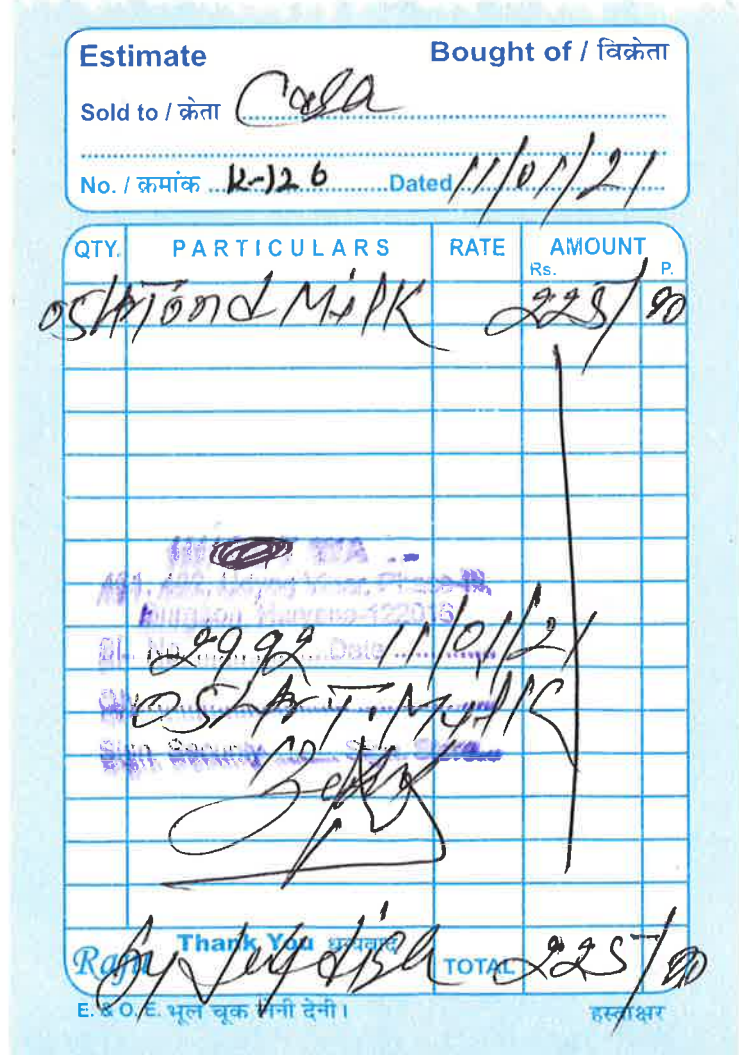 Estimate Bought of / विक्रेता
Sold to / क्रेता Cash
No. / क्रमांक K-126 Dated 11/01/21
QTY. PARTICULARS RATE AMOUNT
Rs. P.
Milk 225/00
Phase-
Gurgaon Haryana-122016
Sl. No. 2992 Date 11/01/21
Milk
Sign. Security Sign. Store
Raju Thank You धन्यवाद TOTAL 225/00
E. & O. E. भूल चूक लेनी देनी। हस्ताक्षर